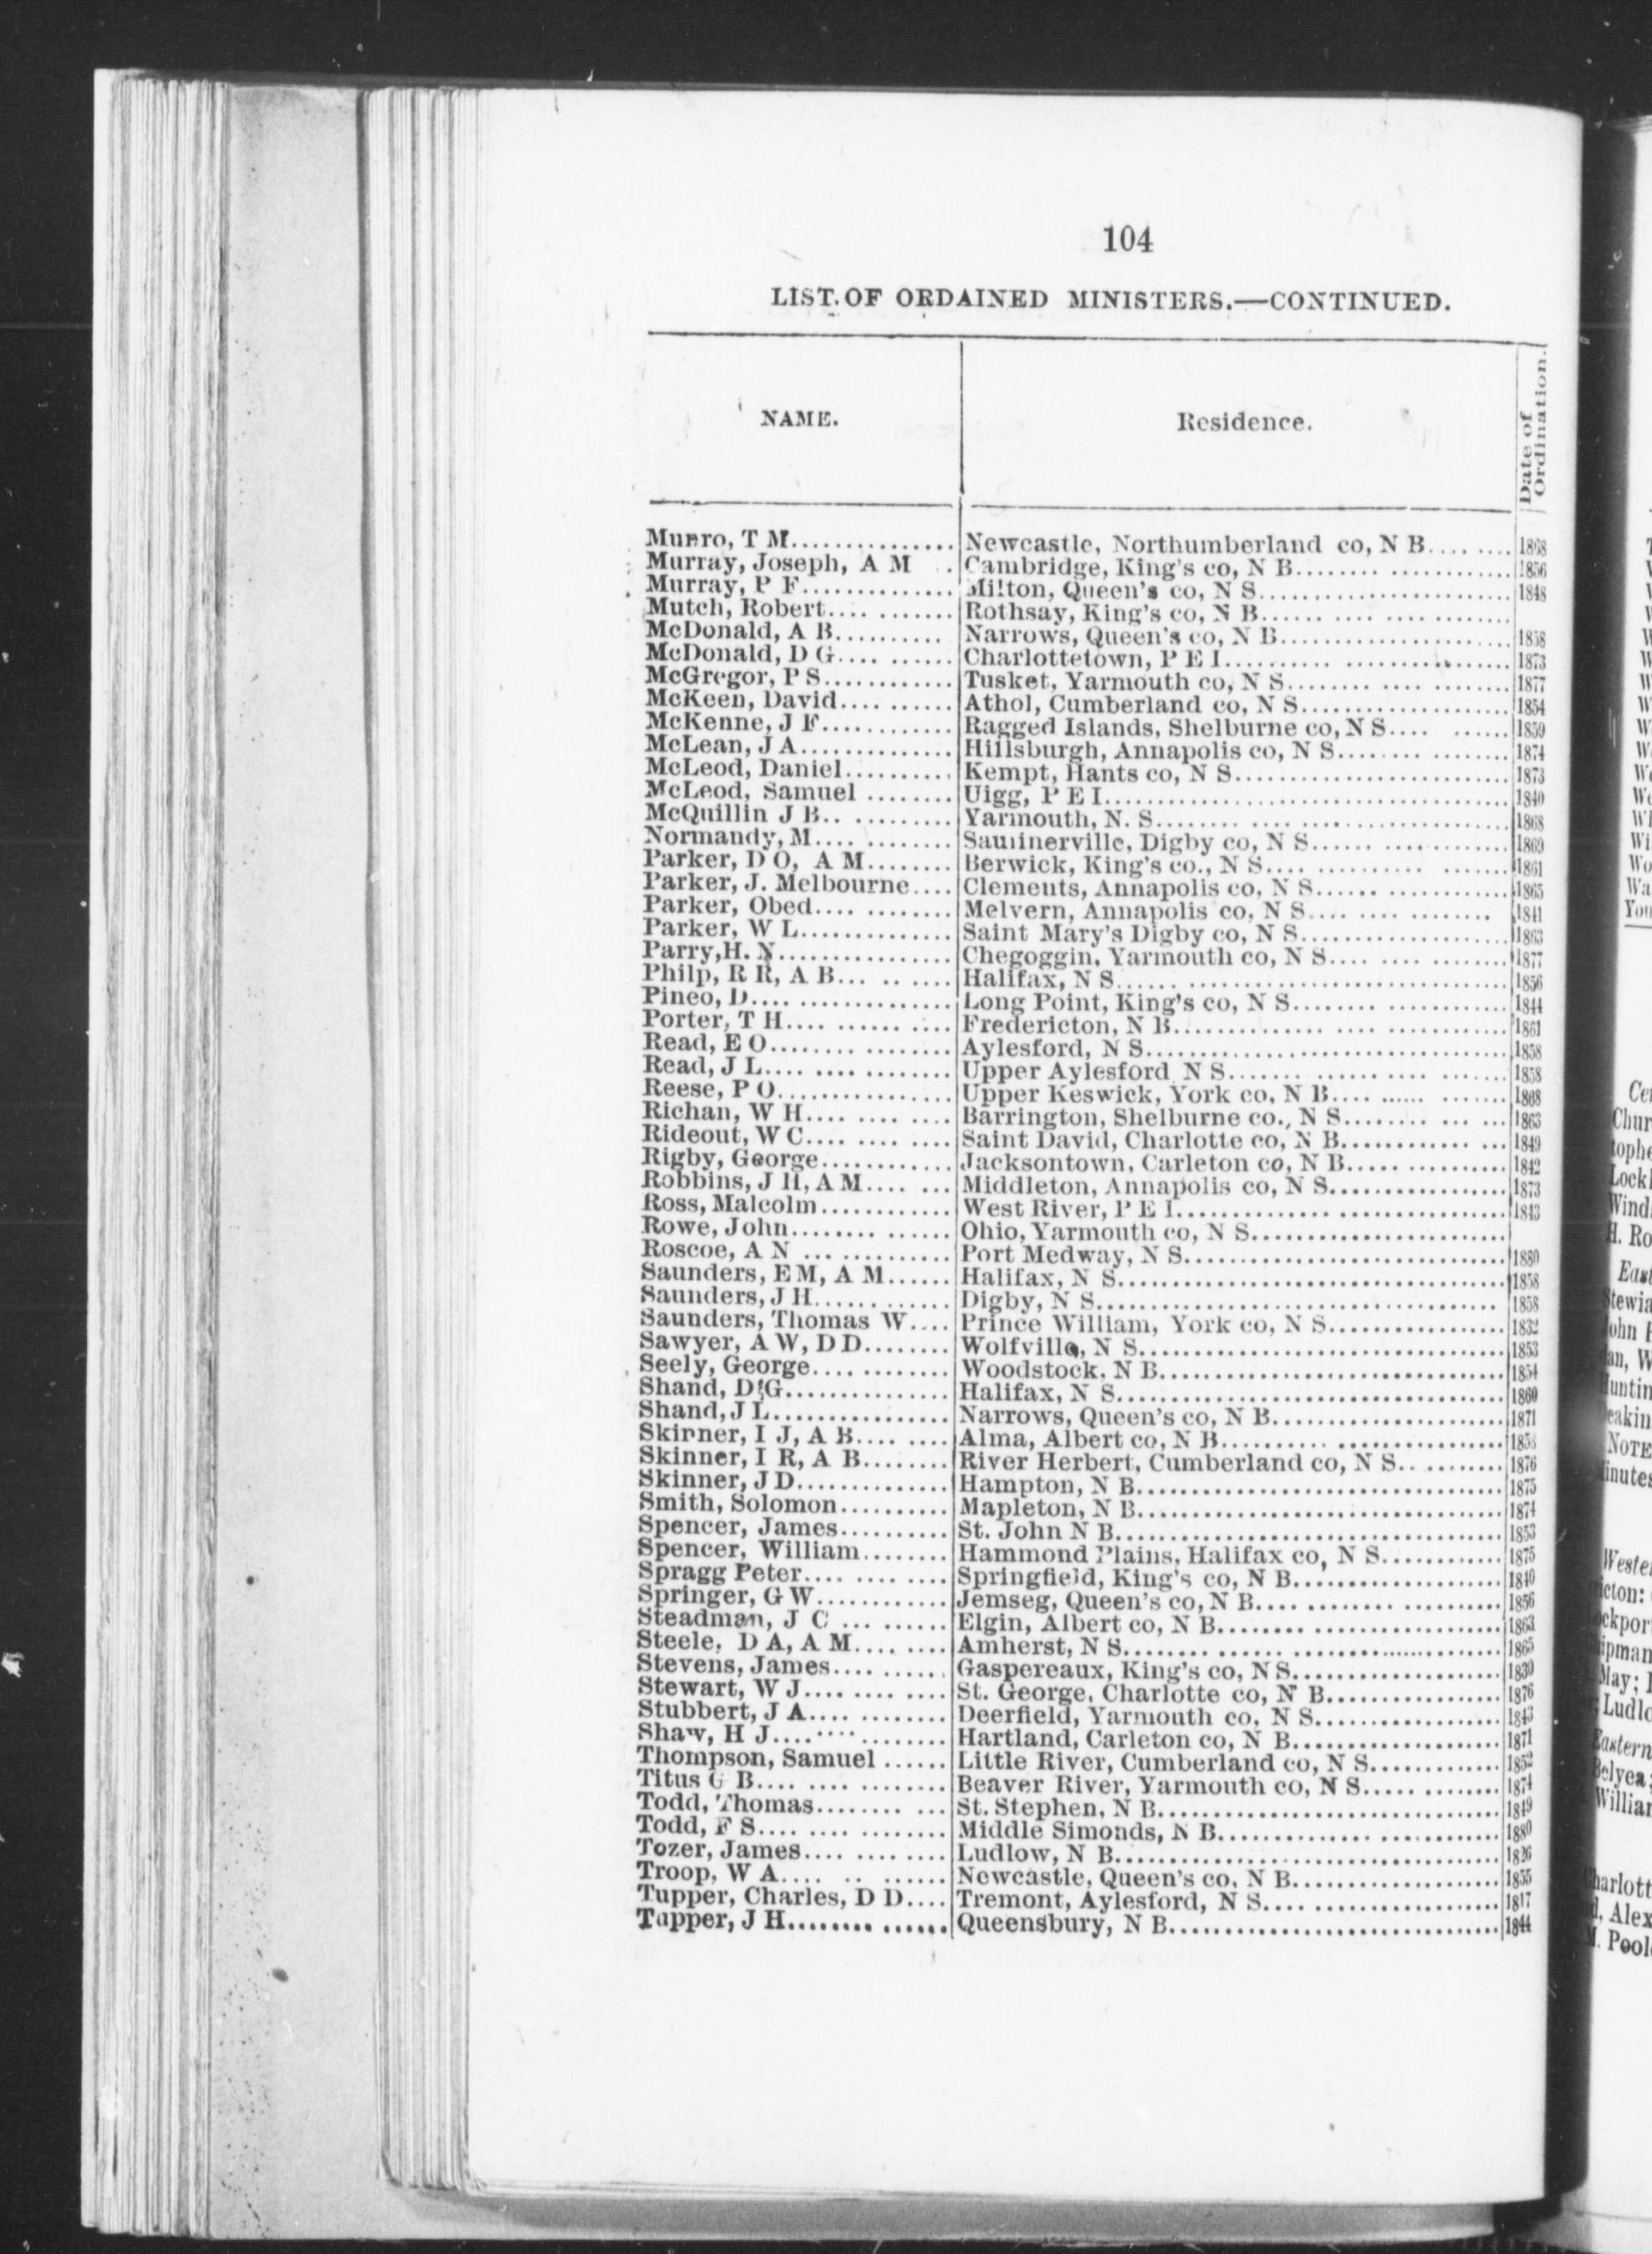 104
LIST. OF ORDAINED MINISTERS.—CONTINUED.
NAME. Residence. Date of Ordination.
Munro, T M............... Newcastle, Northumberland co, N B........ 1868
Murray, Joseph, A M .. Cambridge, King's co, N B........ ............ 1856
Murray, P F............... Milton, Queen's co, N S........................ 1848
Mutch, Robert.... ........ Rothsay, King's co, N B...... .... .... ........
McDonald, A B.......... Narrows, Queen's co, N B...................... 1858
McDonald, D G.... ...... Charlottetown, P E I.......... ................ 1873
McGregor, P S............ Tusket, Yarmouth co, N S........ .... ........ 1877
McKeen, David.... ...... Athol, Cumberland co, N S.................... 1854
McKenne, J F............ Ragged Islands, Shelburne co, N S.... ...... 1859
McLean, J A.............. Hillsburgh, Annapolis co, N S........ ........ 1874
McLeod, Daniel.......... Kempt, Hants co, N S.......................... 1873
McLeod, Samuel ........ Uigg, P E I...................................... 1840
McQuillin J B.. .......... Yarmouth, N. S........ .... .................... 1868
Normandy, M.... ........ Saulinerville, Digby co, N S...... ............ 1869
Parker, D O, A M........ Berwick, King's co., N S.... .......... ........ 1861
Parker, J. Melbourne.... Clements, Annapolis co, N S...... ............ 1865
Parker, Obed.... ........ Melvern, Annapolis co, N S.... .... ........ 1841
Parker, W L.............. Saint Mary's Digby co, N S.................... 1863
Parry,H. N................ Chegoggin, Yarmouth co, N S.... .... ........ 1877
Philp, R R, A B... .. .... Halifax, N S...... .............................. 1856
Pineo, D.... .............. Long Point, King's co, N S........ ............ 1844
Porter, T H.... ...... .... Fredericton, N B.............. .... ............ 1861
Read, E O........ ........ Aylesford, N S.................................. 1858
Read, J L.... .... ........ Upper Aylesford N S....... .......... .... ....... 1858
Reese, P O................ Upper Keswick, York co, N B.... ...... ....... 1868
Richan, W H.... .... .... Barrington, Shelburne co., N S........ ... ... 1863
Rideout, W C.... .... .... Saint David, Charlotte co, N B............ ... 1849
Rigby, George............ Jacksontown, Carleton co, N B..... .......... 1842
Robbins, J H, A M.... ... Middleton, Annapolis co, N S................. 1873
Ross, Malcolm............ West River, P E I.............. ................ 1843
Rowe, John........ ...... Ohio, Yarmouth co, N S........................
Roscoe, A N ... .......... Port Medway, N S.............................. 1880
Saunders, E M, A M...... Halifax, N S.................................... 1858
Saunders, J H............ Digby, N S...................................... 1858
Saunders, Thomas W.... Prince William, York co, N S................. 1832
Sawyer, A W, D D........ Wolfville, N S.................................. 1853
Seely, George.... ........ Woodstock. N B................................ 1854
Shand, D G............... Halifax, N S.................................... 1860
Shand, J L................ Narrows, Queen's co, N B...................... 1871
Skinner, I J, A B.... .... Alma, Albert co, N B.......... ................
Skinner, I R, A B........ River Herbert, Cumberland co, N S.. ........ 1876
Skinner, J D.............. Hampton, N B.................................. 1875
Smith, Solomon.......... Mapleton, N B.................................. 1874
Spencer, James.......... St. John N B.................................... 1853
Spencer, William........ Hammond Plains, Halifax co, N S............ 1875
Spragg Peter.... .... .... Springfield, King's co, N B.................... 1840
Springer, G W............ Jemseg, Queen's co, N B.... ........ .......... 1856
Steadman, J C ... ....... Elgin, Albert co, N B........ .................. 1863
Steele. D A, A M.... .... Amherst, N S........ ...... .................... 1865
Stevens, James.... ...... Gaspereaux, King's co, N S.................... 1830
Stewart, W J.... .... .... St. George, Charlotte co, N B................. 1876
Stubbert, J A.... ........ Deerfield, Yarmouth co, N S.................. 1843
Shaw, H J.... .... ........ Hartland, Carleton co, N B.................... 1871
Thompson, Samuel ...... Little River, Cumberland co, N S............. 1852
Titus G B.... .... ........ Beaver River, Yarmouth co, N S..... ........ 1874
Todd, Thomas........ ... St. Stephen, N B................................ 1849
Todd, F S.... .... ........ Middle Simonds, N B.............. ............ 1880
Tozer, James.... .... .... Ludlow, N B.................................... 1826
Troop, W A.... .. ....... Newcastle, Queen's co, N B.................... 1855
Tupper, Charles, D D.... Tremont, Aylesford, N S.... .................. 1817
Tupper, J H........ ...... Queensbury, N B................................ 1844